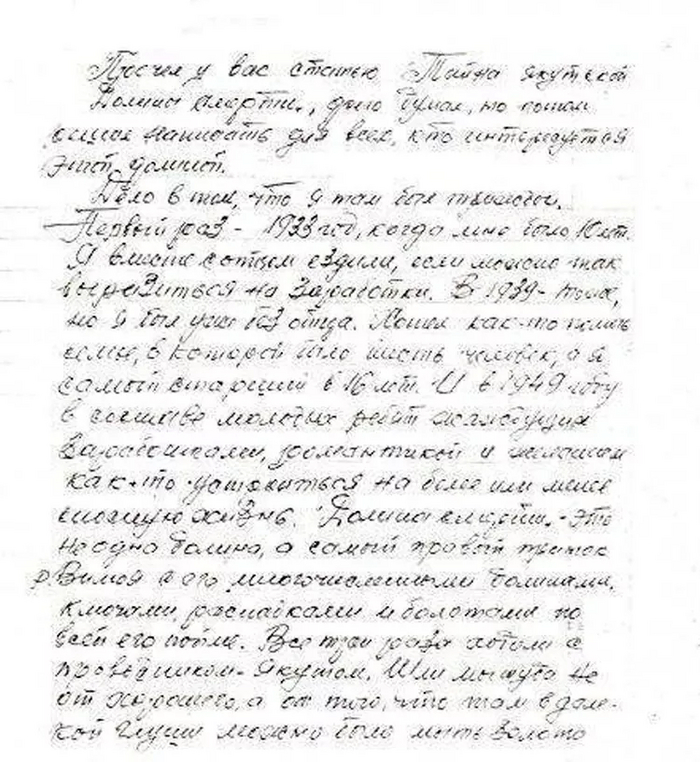 Прочел у вас статью Тайна якутской
Долины смерти., долго думал, но потом
решил написать для всех, кто интересуется
этой долиной.
Дело в том, что я там был трижды.
Первый раз - 1933 год, когда мне было 10 лет.
Я вместе с отцом ездили, если можно так
выразиться на заработки. В 1939- тоже,
но я был уже без отца. Хотел как-то помочь
семье, в которой было шесть человек, а я
самый старший в 16 лет. И в 1949 году
в составе молодых ребят
заработками, романтикой и желанием
как-то устроиться на более или менее
сносную жизнь. Долина смерти.- это
не одна долина, а самый правый приток
р. Вилюя с его многочисленными долинами,
ключами, распадками и болотами по
всей его пойме. Все три раза ходили с
проводником-якутом. Шли мы туда не
от хорошего, а от того, что там в дале-
кой глуши можно было мыть золото